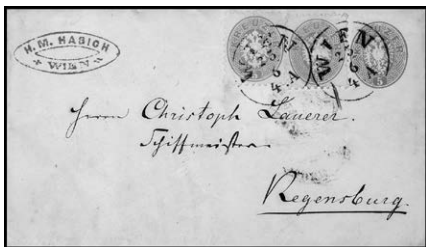 H. M. HABICH
WIEN
WIEN
WIEN
Herrn Christoph Lauerer.
Schiffmeister
Regensburg.